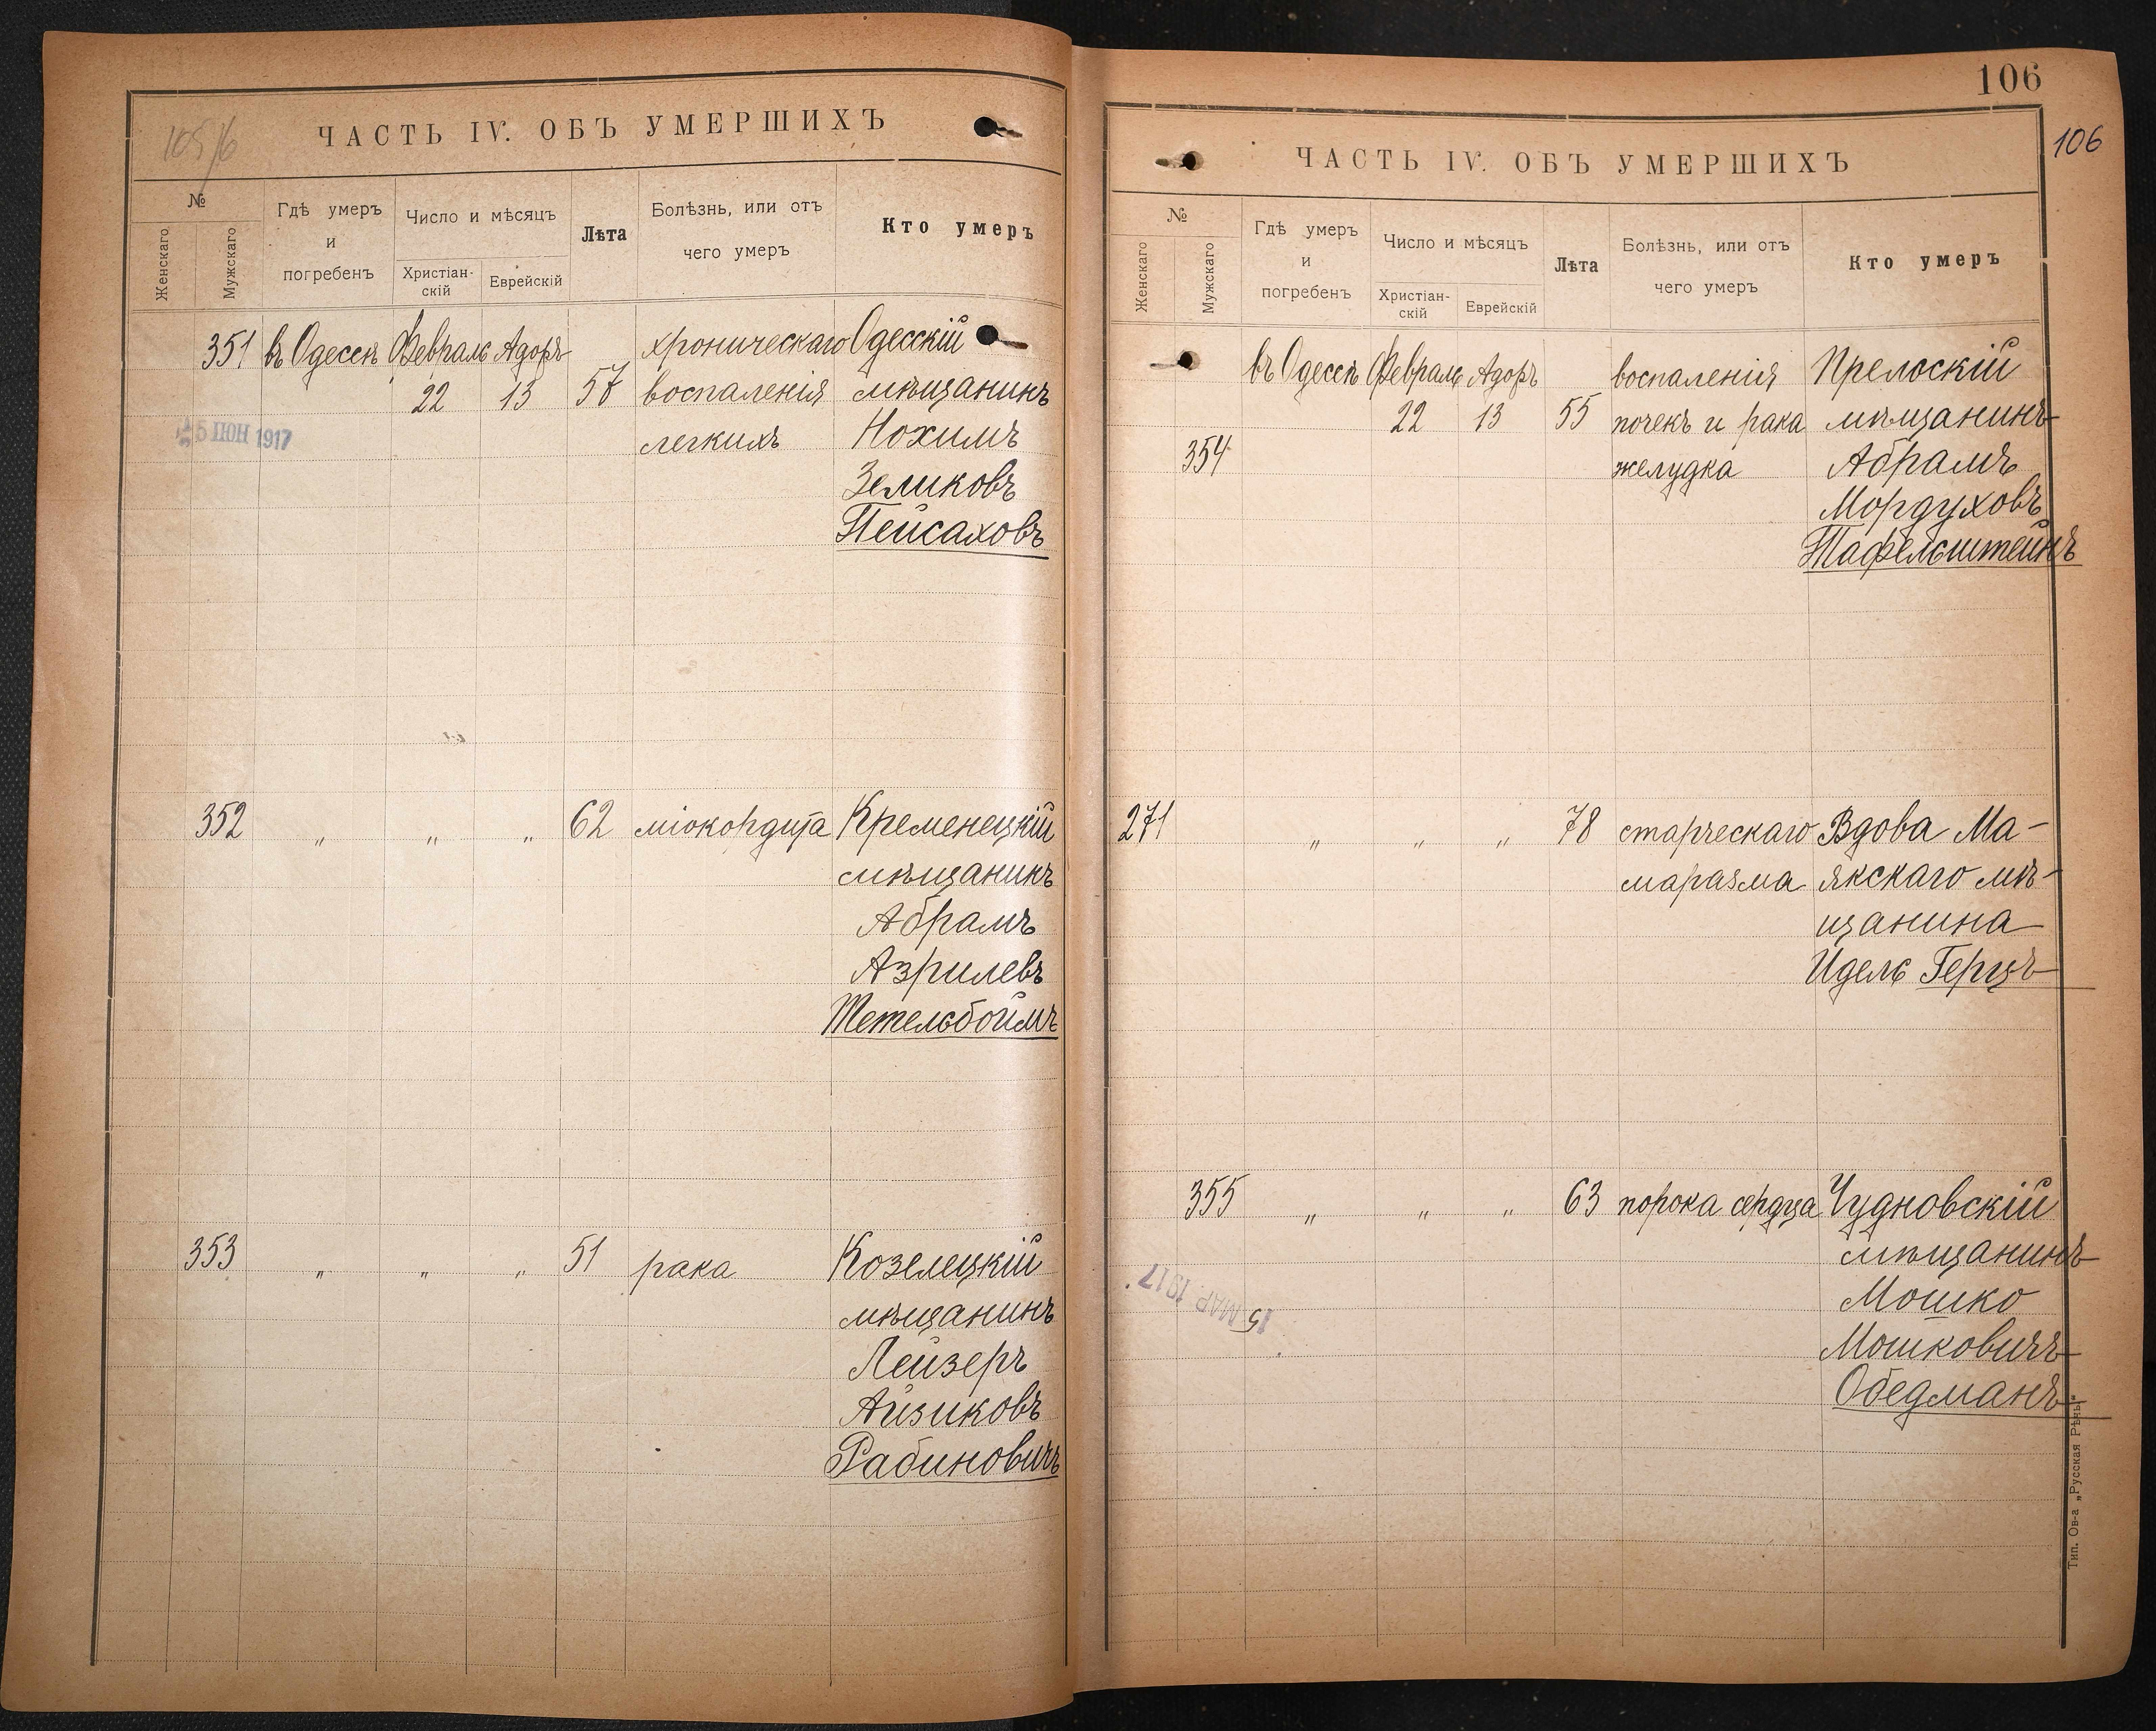 ЧАСТЬ IV. ОБЪ УМЕРШИХЪ
№
Женскаго
Мужскаго
Гдѣ умеръ
и
погребенъ
Число и мѣсяцъ
Христіан-
скій
Еврейскій
Лѣта
Болѣзнь, или отъ
чего умеръ
Кто умеръ
351 въ Одессѣ Февраль Адоръ хроническаго Одесскій
22 13 57 воспаленія мѣщанинъ
5 ІЮН 1917
легкихъ Нохимъ
Зеликовъ
Пейсаховъ
352 " " " 62 міокордита Кременецкій
мѣщанинъ
Абрамъ
Азрилевъ
Тетельбоймъ
353 " " " 51 рака Козелецкій
мѣщанинъ
Лейзеръ
Айзиковъ
Рабиновичъ
106
106
ЧАСТЬ IV. ОБЪ УМЕРШИХЪ
№
Женскаго
Мужскаго
Гдѣ умеръ
и
погребенъ
Число и мѣсяцъ
Христіан-
скій
Еврейскій
Лѣта
Болѣзнь, или отъ
чего умеръ
Кто умеръ
въ Одессѣ Февраль Адоръ воспаленія Прелоскій
22 13 55 почекъ и рака мѣщанинъ
354 желудка Абрамъ
Мордуховъ
Тафельштейнъ
271 " " " 78 старческаго Вдова Ма-
маразма якскаго мѣ-
щанина
Идель Герцъ
355 " " " 63 порока сердца Чудновскій
мѣщанинъ
15 МАР 1917
Мошко
Мошковичъ
Обедманъ
Тип. Ов-а „Русская Рѣчь"